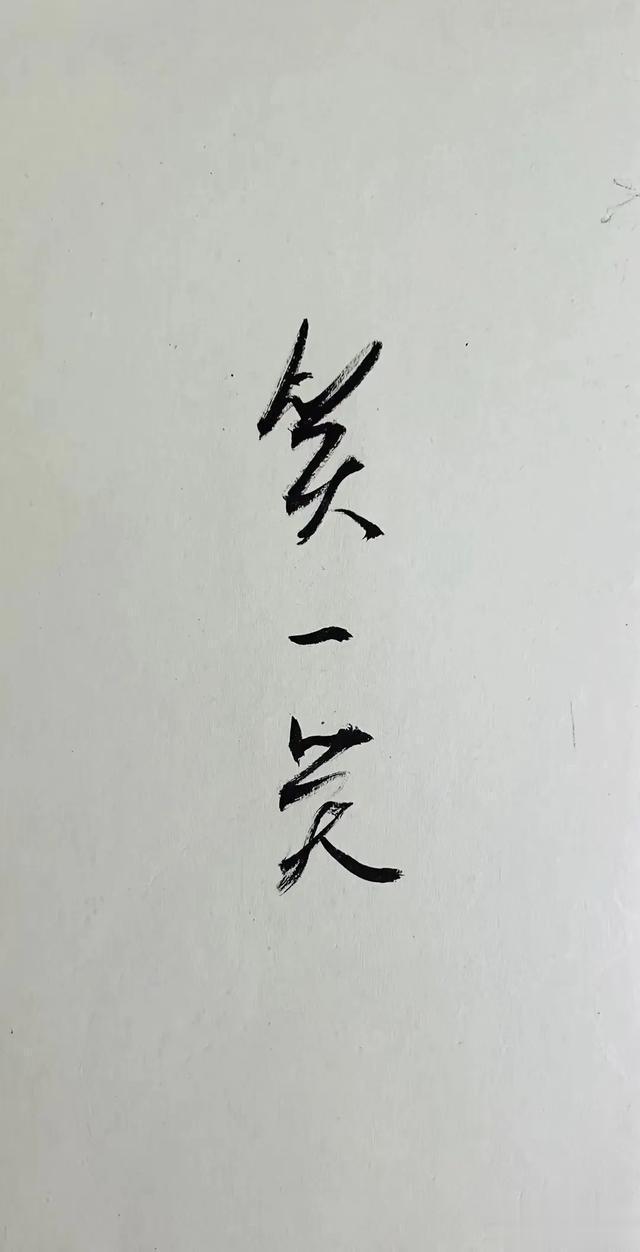 笑一笑